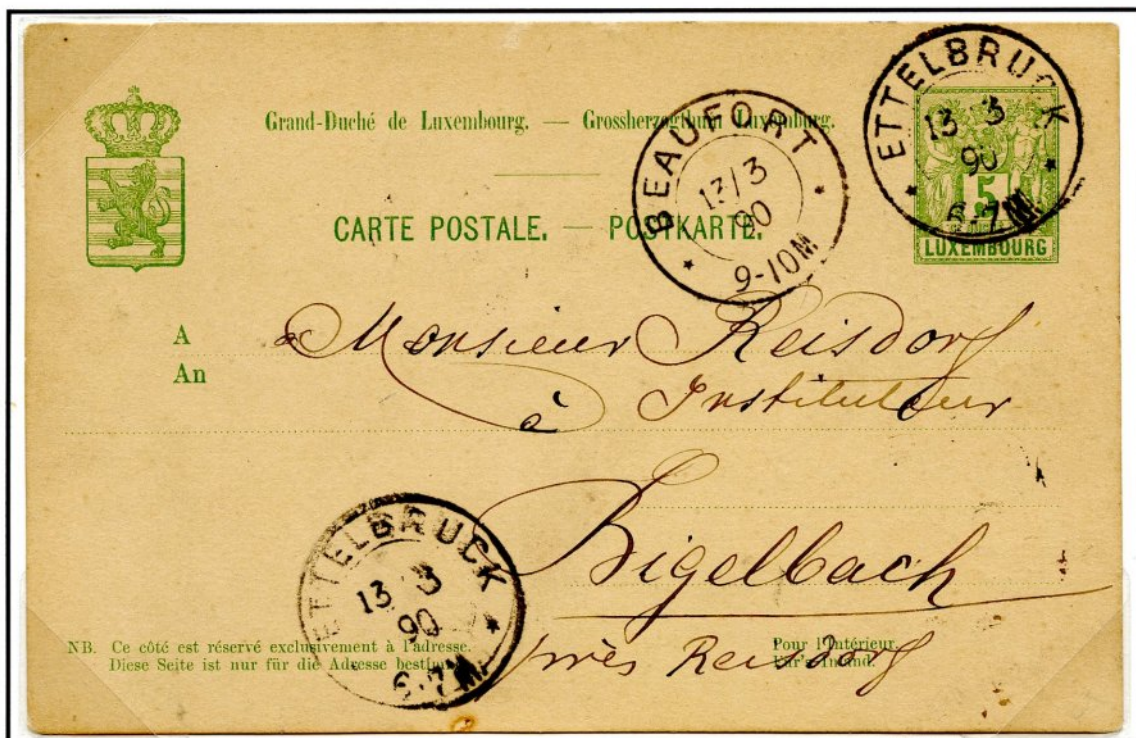 Grand-Duché de Luxembourg. — Grossherzogthum Luxemburg.
CARTE POSTALE. — POSTKARTE.
BEAUFORT
13/3
90
9-10M
ETTELBRUCK
13 3
90
6-7M
5
LUXEMBOURG
A
An
Monsieur Reisdorf
à Instituteur
Bigelbach
près Reisdorf
ETTELBRUCK
13 3
90
6-7M
NB. Ce côté est réservé exclusivement à l'adresse.
Diese Seite ist nur für die Adresse bestimmt.
Pour l'Intérieur.
Für's Inland.